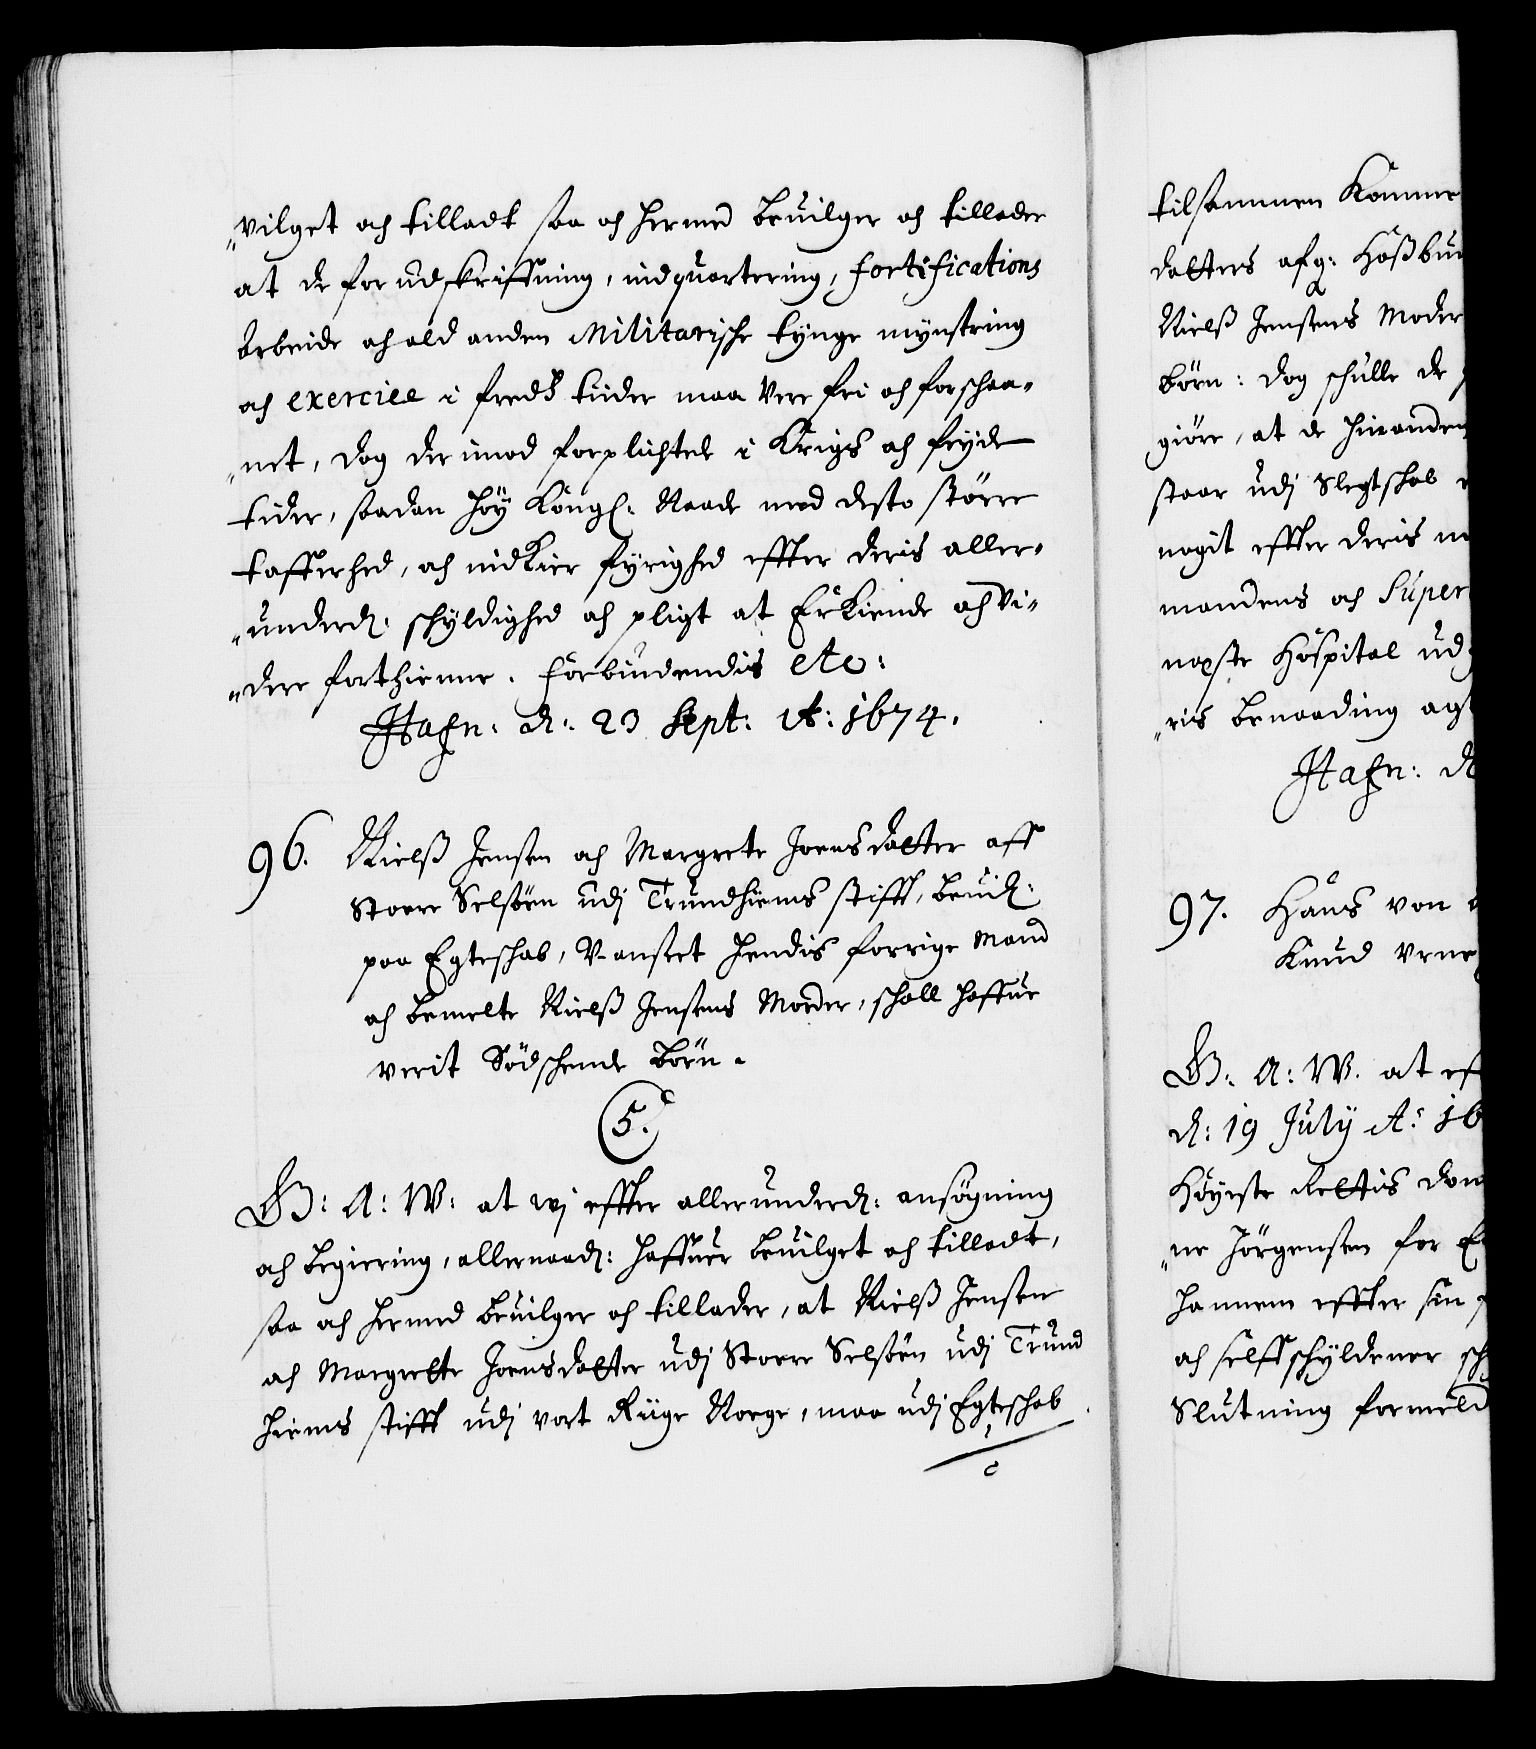 "vilget och tilladt saa och hermed beuilger och tillader
at de for udskriffning, indquartering, fortifications
Arbeide och ald anden Militarische tynge mynstring
och exercice i freds tiider maa vere fri och forschaa-
"net, dog der imod forplichtede i Krigs och feyde
tider, saadan höy Kongl: Naade med desto större
tafferhed, och nidkier fyrighed effter deris aller-
"underd: schyldighed och pligt at Erkiende och vi-
"dere forthienne. Forbiudendis etc:
Hafn: d: 23 Sept: A: 1674.
96. Nielß Jensen och Margrete Joensdatter aff
Stoere Selsöen udj Trundhiems stifft, beuil:
paa Egteschab, V-anseet hendis forrige Mand
och bemelte Nielß Jensens Moder, schall haffue
verit Södschende börn.
5.
G: A: W: at wj effter allerunderd: ansögning
och begiering, allernaad: haffuer beuilget och tilladt,
saa och hermed beuilger och tillader, at Nielß Jensen
och Margrette Joensdatter udj Stoere Selsöen udj Trund
hiems stifft udj vort Riige Norge, maa udj Egteschab
tilsammen Komme
datters afg: Hoßbu
Nielß Jensens Moder
börn: dog schulle de
giöre, at de hinanden
staar udj Slegtschab
nogit effter deris
mandens och Super
neste Hospital ud
"ris benaading agt
Hafn: d
97. Hans von
Knud Vrne
G: A: W: at ef
d: 19 July A: 16
Höyeste Rettis dom
"ne Jörgensen for
hannem effter sin
och selffschyldener sch
Slutning formeld